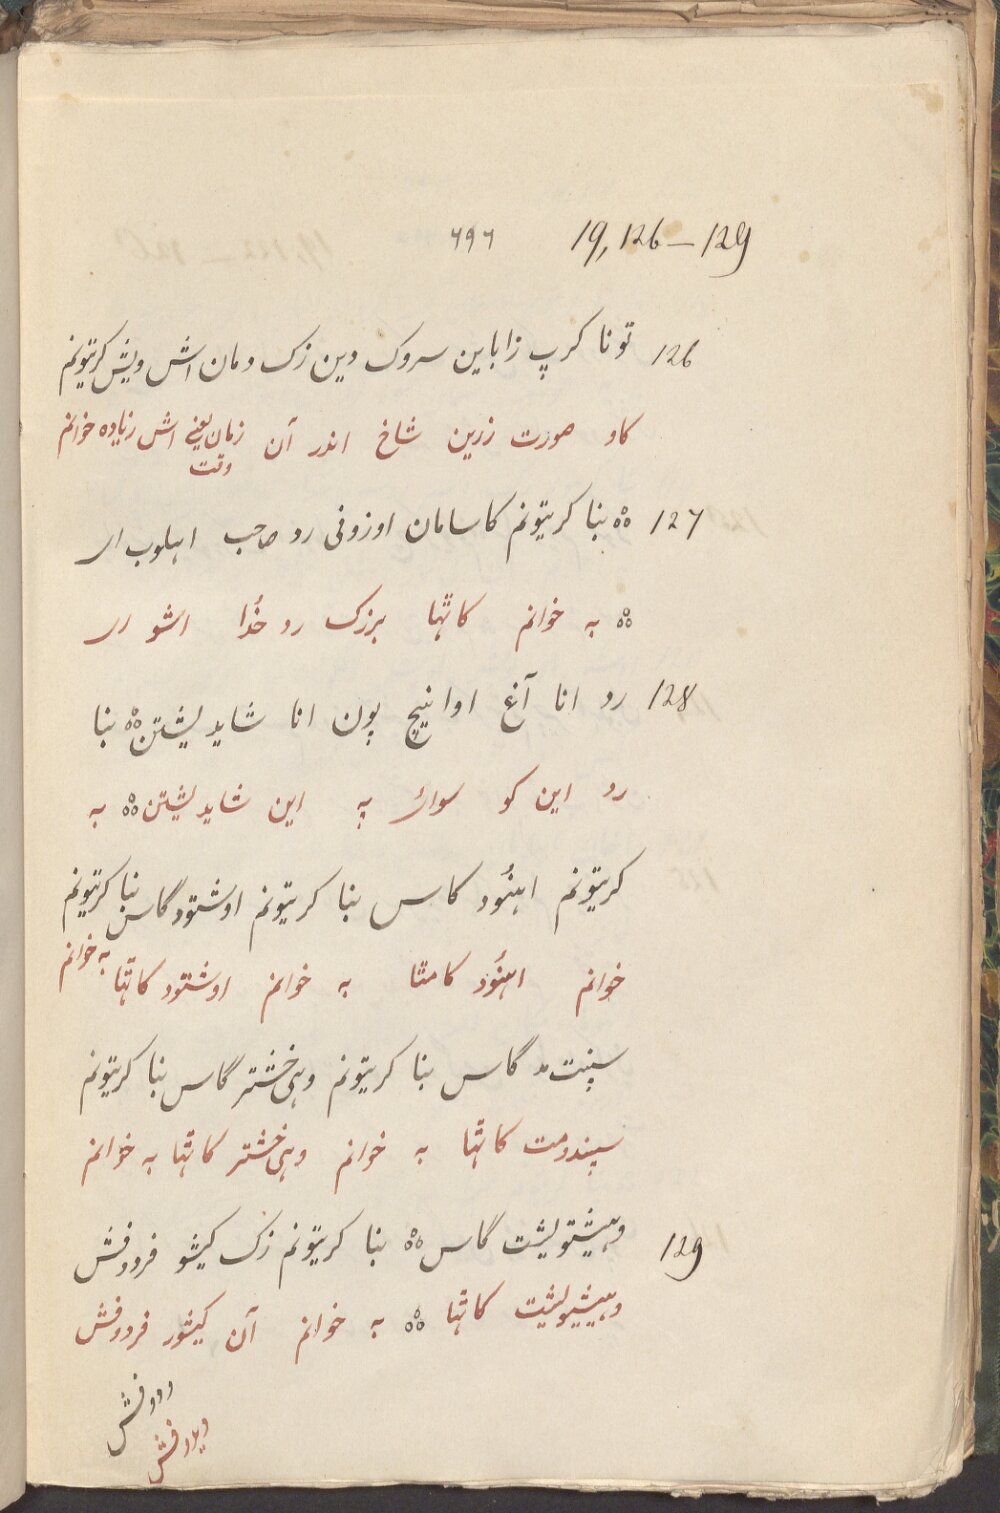 19, 126 – 129 ۶۹۶
126 تو نا کرپ زا باین سروک دین زک دمان اش ویش کریتونم
کاو صورت زرین شاخ اندر آن زمان یعنے وقت اش زیاده خوانم
127 ؞ بنا کریتونم کاسامان اوزوفی رد صاحب اهلوب ار
؞ به خوانم کاتها بزرک رد خُدا اشو ار
128 رد انا آغ اوانیچ پون انا شاید لیشتن ؞ بنا
رد این کو سوار په این شاید لیشتن ؞ به
کریتونم اهنُود کاس بنا کریتونم اوشتود گاس بنا کریتونم
خوانم اهنُود کامتا به خوانم اوشتود کاتها به خوانم
سپنت مد گاس بنا کریتونم وهی خشتر گاس بنا کریتونم
سپندومت کاتها به خوانم وهی خشتر کاتها به خوانم
129 وهیشتولیشت گاس ؞ بنا کریتونم زک کیشو فرودفش
وهیشیولیشت کاتها ؞ به خوانم آن کیشور فردوفش
وودفش
ویدافش